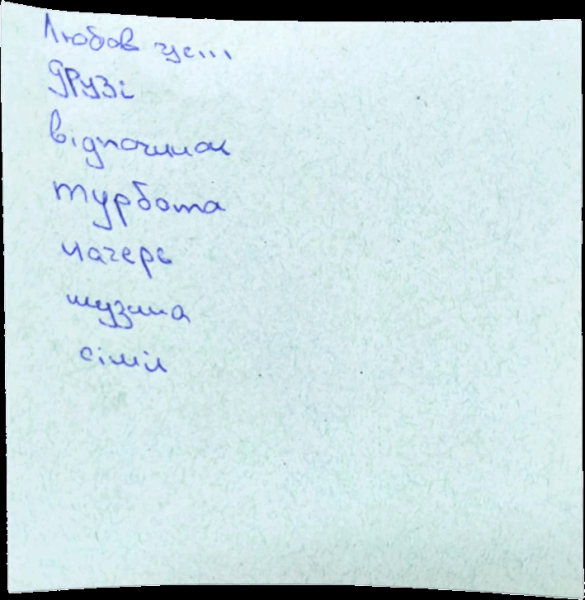 Любов це...
друзі
відпочинок
турбота
чагерь
музика
сімія